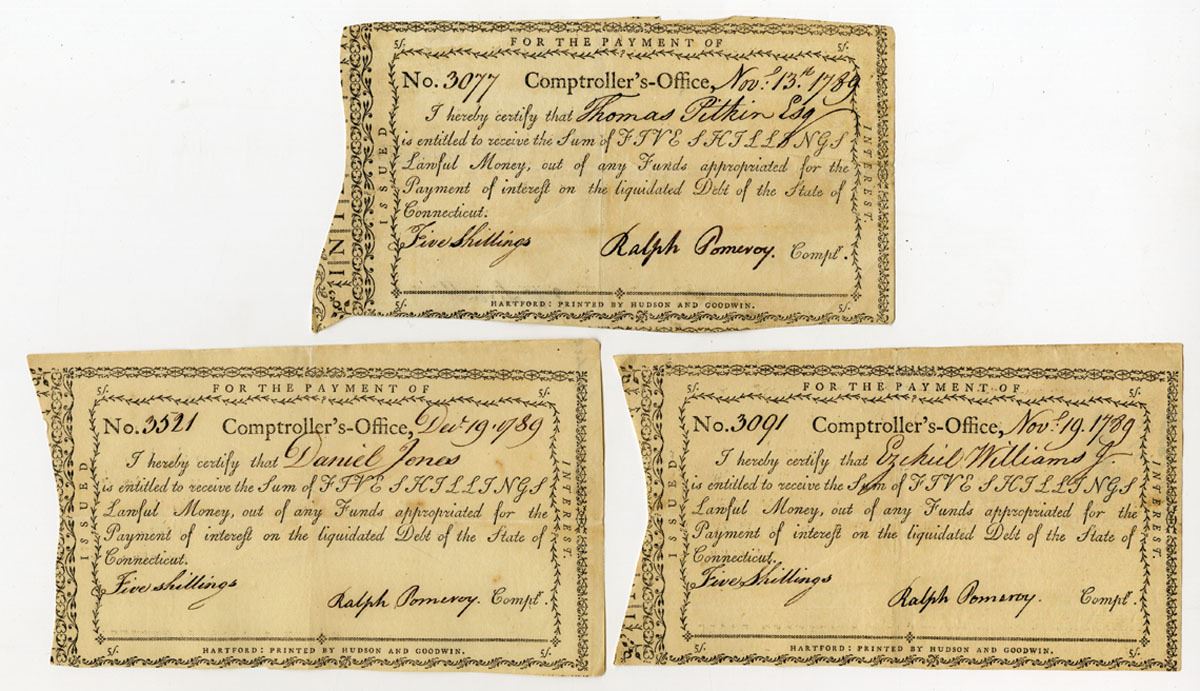 5/. FOR THE PAYMENT OF 5/.
No. 3077 Comptroller's-Office, Novr. 13th. 1789
I hereby certify that Thomas Pitkin Esq
is entitled to receive the Sum of FIVE SHILLINGS
Lawful Money, out of any Funds appropriated for the
Payment of interest on the liquidated Debt of the State of
Connecticut.
Five Shillings Ralph Pomeroy. Complr.
ISSUED
INTEREST.
5/. HARTFORD: PRINTED BY HUDSON AND GOODWIN. 5/.
5/. FOR THE PAYMENT OF 5/.
No. 3521 Comptroller's-Office, Decr 19. 1789
I hereby certify that Daniel Jones
is entitled to receive the Sum of FIVE SHILLINGS
Lawful Money, out of any Funds appropriated for the
Payment of interest on the liquidated Debt of the State of
Connecticut.
Five shillings Ralph Pomeroy. Complr.
ISSUED
INTEREST.
5/. HARTFORD: PRINTED BY HUDSON AND GOODWIN. 5/.
5/. FOR THE PAYMENT OF 5/.
No. 3091 Comptroller's-Office, Novr. 19. 1789
I hereby certify that Ezekiel Williams
is entitled to receive the Sum of FIVE SHILLINGS
Lawful Money, out of any Funds appropriated for the
Payment of interest on the liquidated Debt of the State of
Connecticut.
Five Shillings Ralph Pomeroy. Complr.
ISSUED
INTEREST.
5/. HARTFORD: PRINTED BY HUDSON AND GOODWIN. 5/.